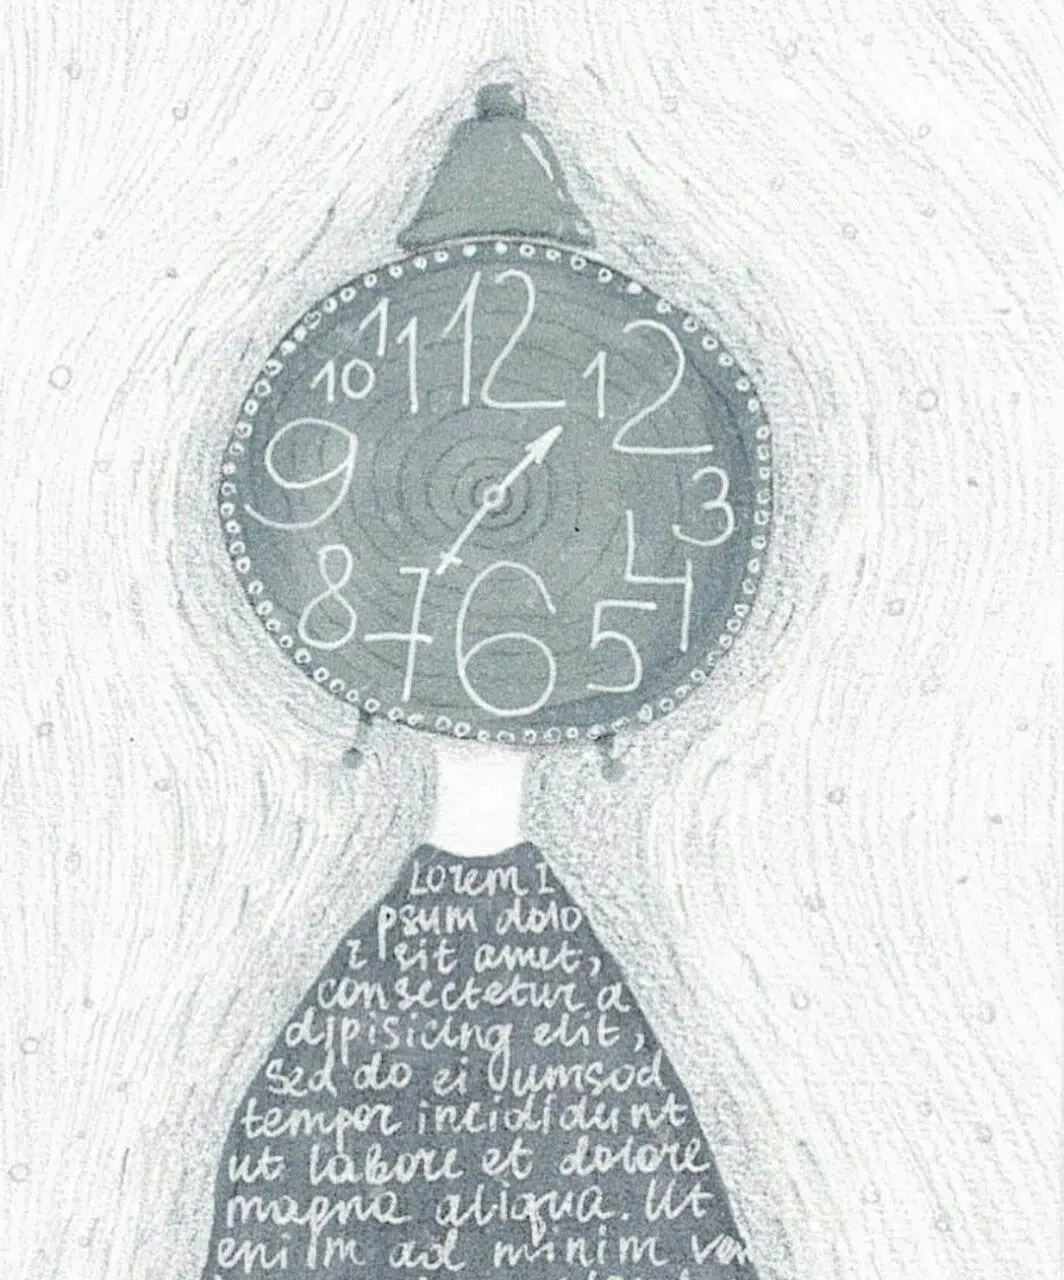 12
11
1
2
10
9
3
4
8
7
6
5
Lorem I
psum dolo
r sit amet,
consectetur a
dipisicing elit,
sed do ei usmod
tempor incididunt
ut labore et dolore
magna aliqua. Ut
enim ad minim ven